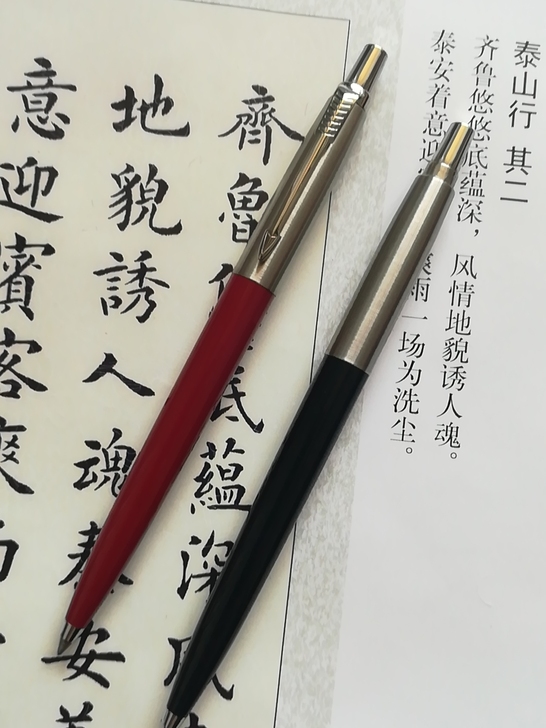 泰山行 其二
齐鲁悠悠底蕴深，风情地貌诱人魂。
泰安着意迎 雨一场为洗尘。
齊魯 底蘊深風
地貌誘人魂泰安
意迎賓客爽